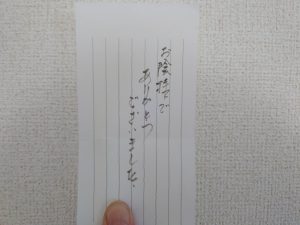 お陰様で
ありがとう
ございました。